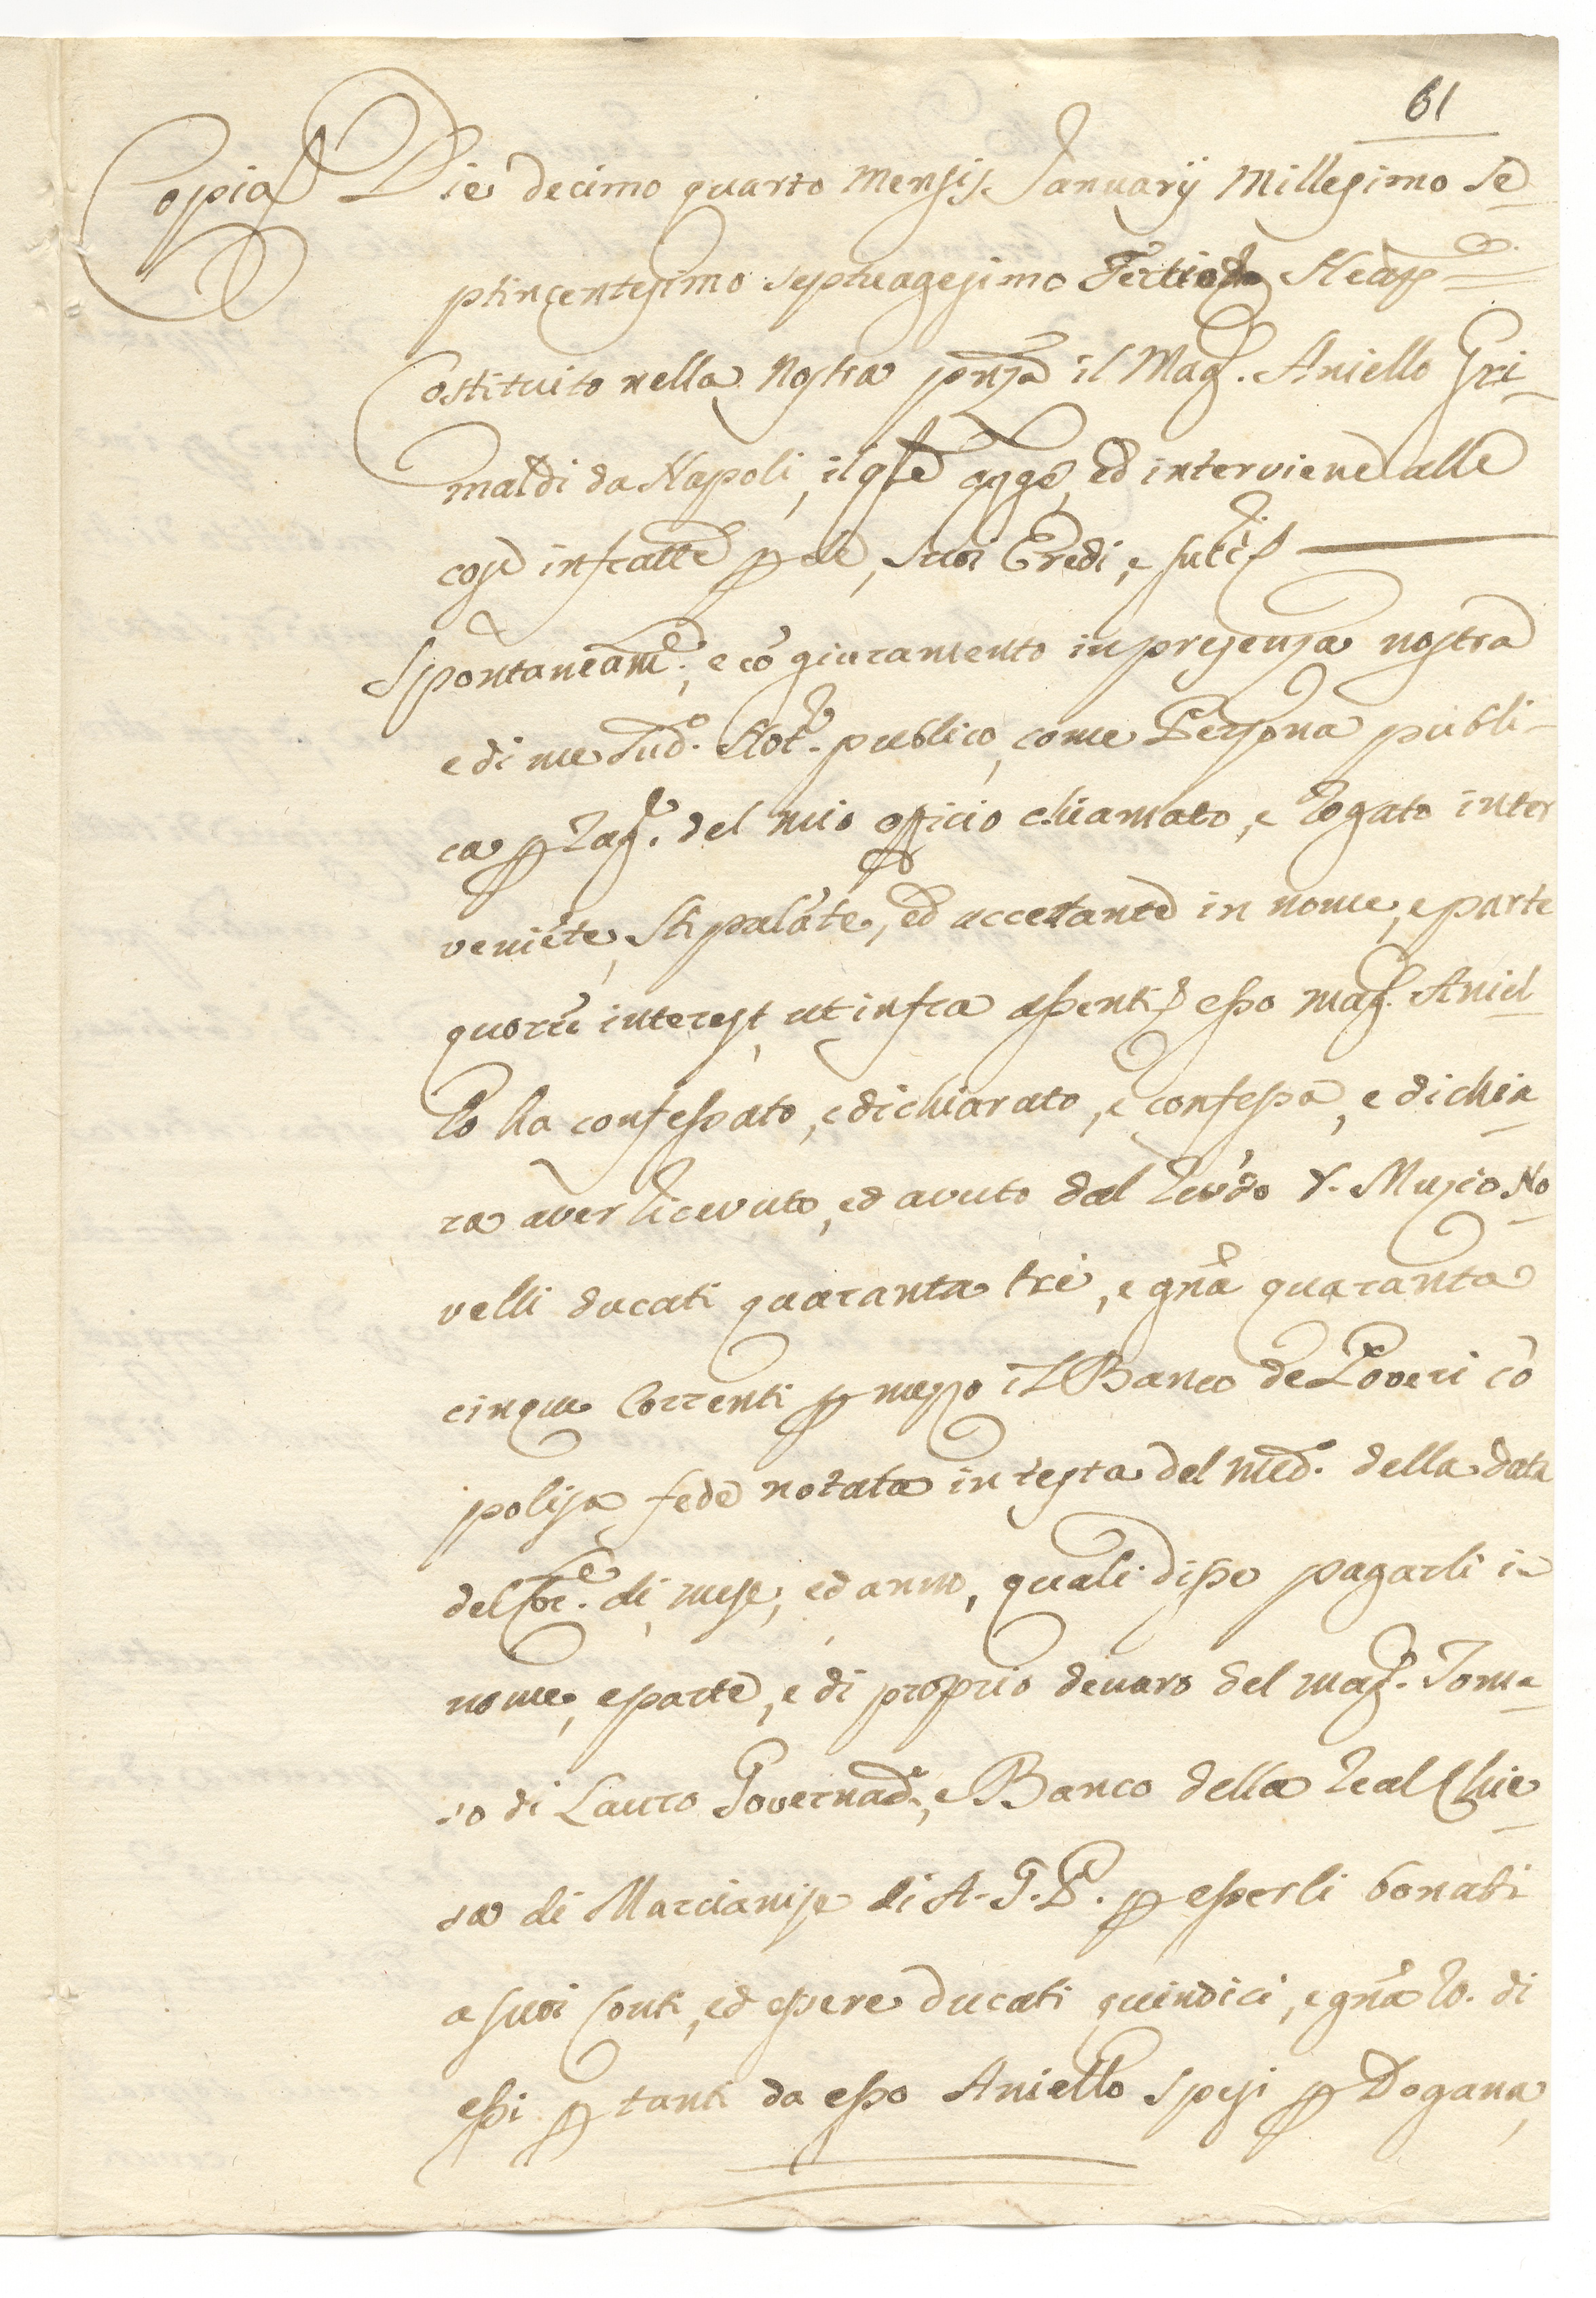 61
Copia Die decimo quarto Mensis Januarij Millesimo Se
ptincentesimo septuagesimo Tertio Neap
Costituito nella Nostra pnza il Mag. Aniello Gri-
maldi da Napoli, il qle agge, ed interviene alle
cose infratte p se, suoi Eredi, e succ
Spontaneamte, e cò giuramento in presenza nostra
e di me sudo. Not. publico, come Persona publi-
ca p rag. del mio officio chiamato, e rogato inter
veniéte, stipuláte, ed accettante in nome, e parte
quorū interest, ut infra assenti esso mag. Aniel
lo ha confessato, e dichiarato, e confessa, e dichia
ra aver ricevuto, ed avuto dal Revdo D. Muzio No
velli ducati quaranta tre, e gnà quaranta
cinque correnti p mezzo il Banco de Poveri cò
polisa fede notata in testa del med. della data
del di, mese, ed anno, quali disse pagarli in
nome, e parte, e di proprio denaro del mag. Toma
so di Lauro Governad., e Banco della Real Chie
sa di Marcianise di A. G. P. p esserli bonati
a suoi conti, ed essere ducati quindici, e gnà 10. di
essi p tanti da esso Aniello spesi p Dogana,